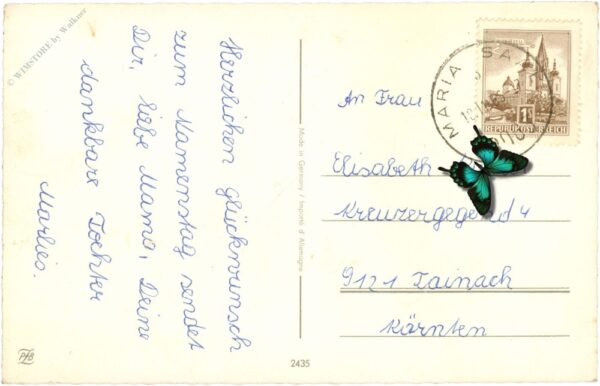 © WIMSTORE by Walkner
Herzlichen Glückwunsch
zum Namenstag sendet
Dir, liebe Mama, Deine
dankbare Tochter
Marlies.
PfB
Made in Germany / Importé d'Allemagne
2435
MARIA SA
REPUBLIK ÖSTERREICH
An Frau
Elisabeth
Kreuzergegend 4
9121 Tainach
Kärnten